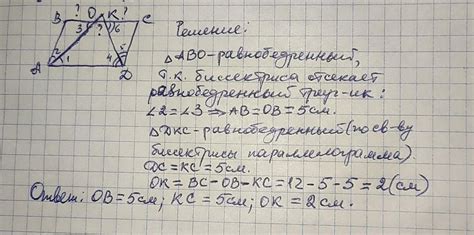 ? O K ?
B C
3 ? 6
2 5
1 4
A D
Решение:
△ABO-равнобедренный,
т.к. биссектриса отсекает
равнобедренный треуг-ик:
∠2=∠3⇒AB=OB=5см.
△DKC-равнобедренный(по св-ву
биссектрисы параллелограмма).
DC=KC=5см.
OK=BC-OB-KC=12-5-5=2(см)
Ответ: OB=5см; KC=5см; OK=2см.